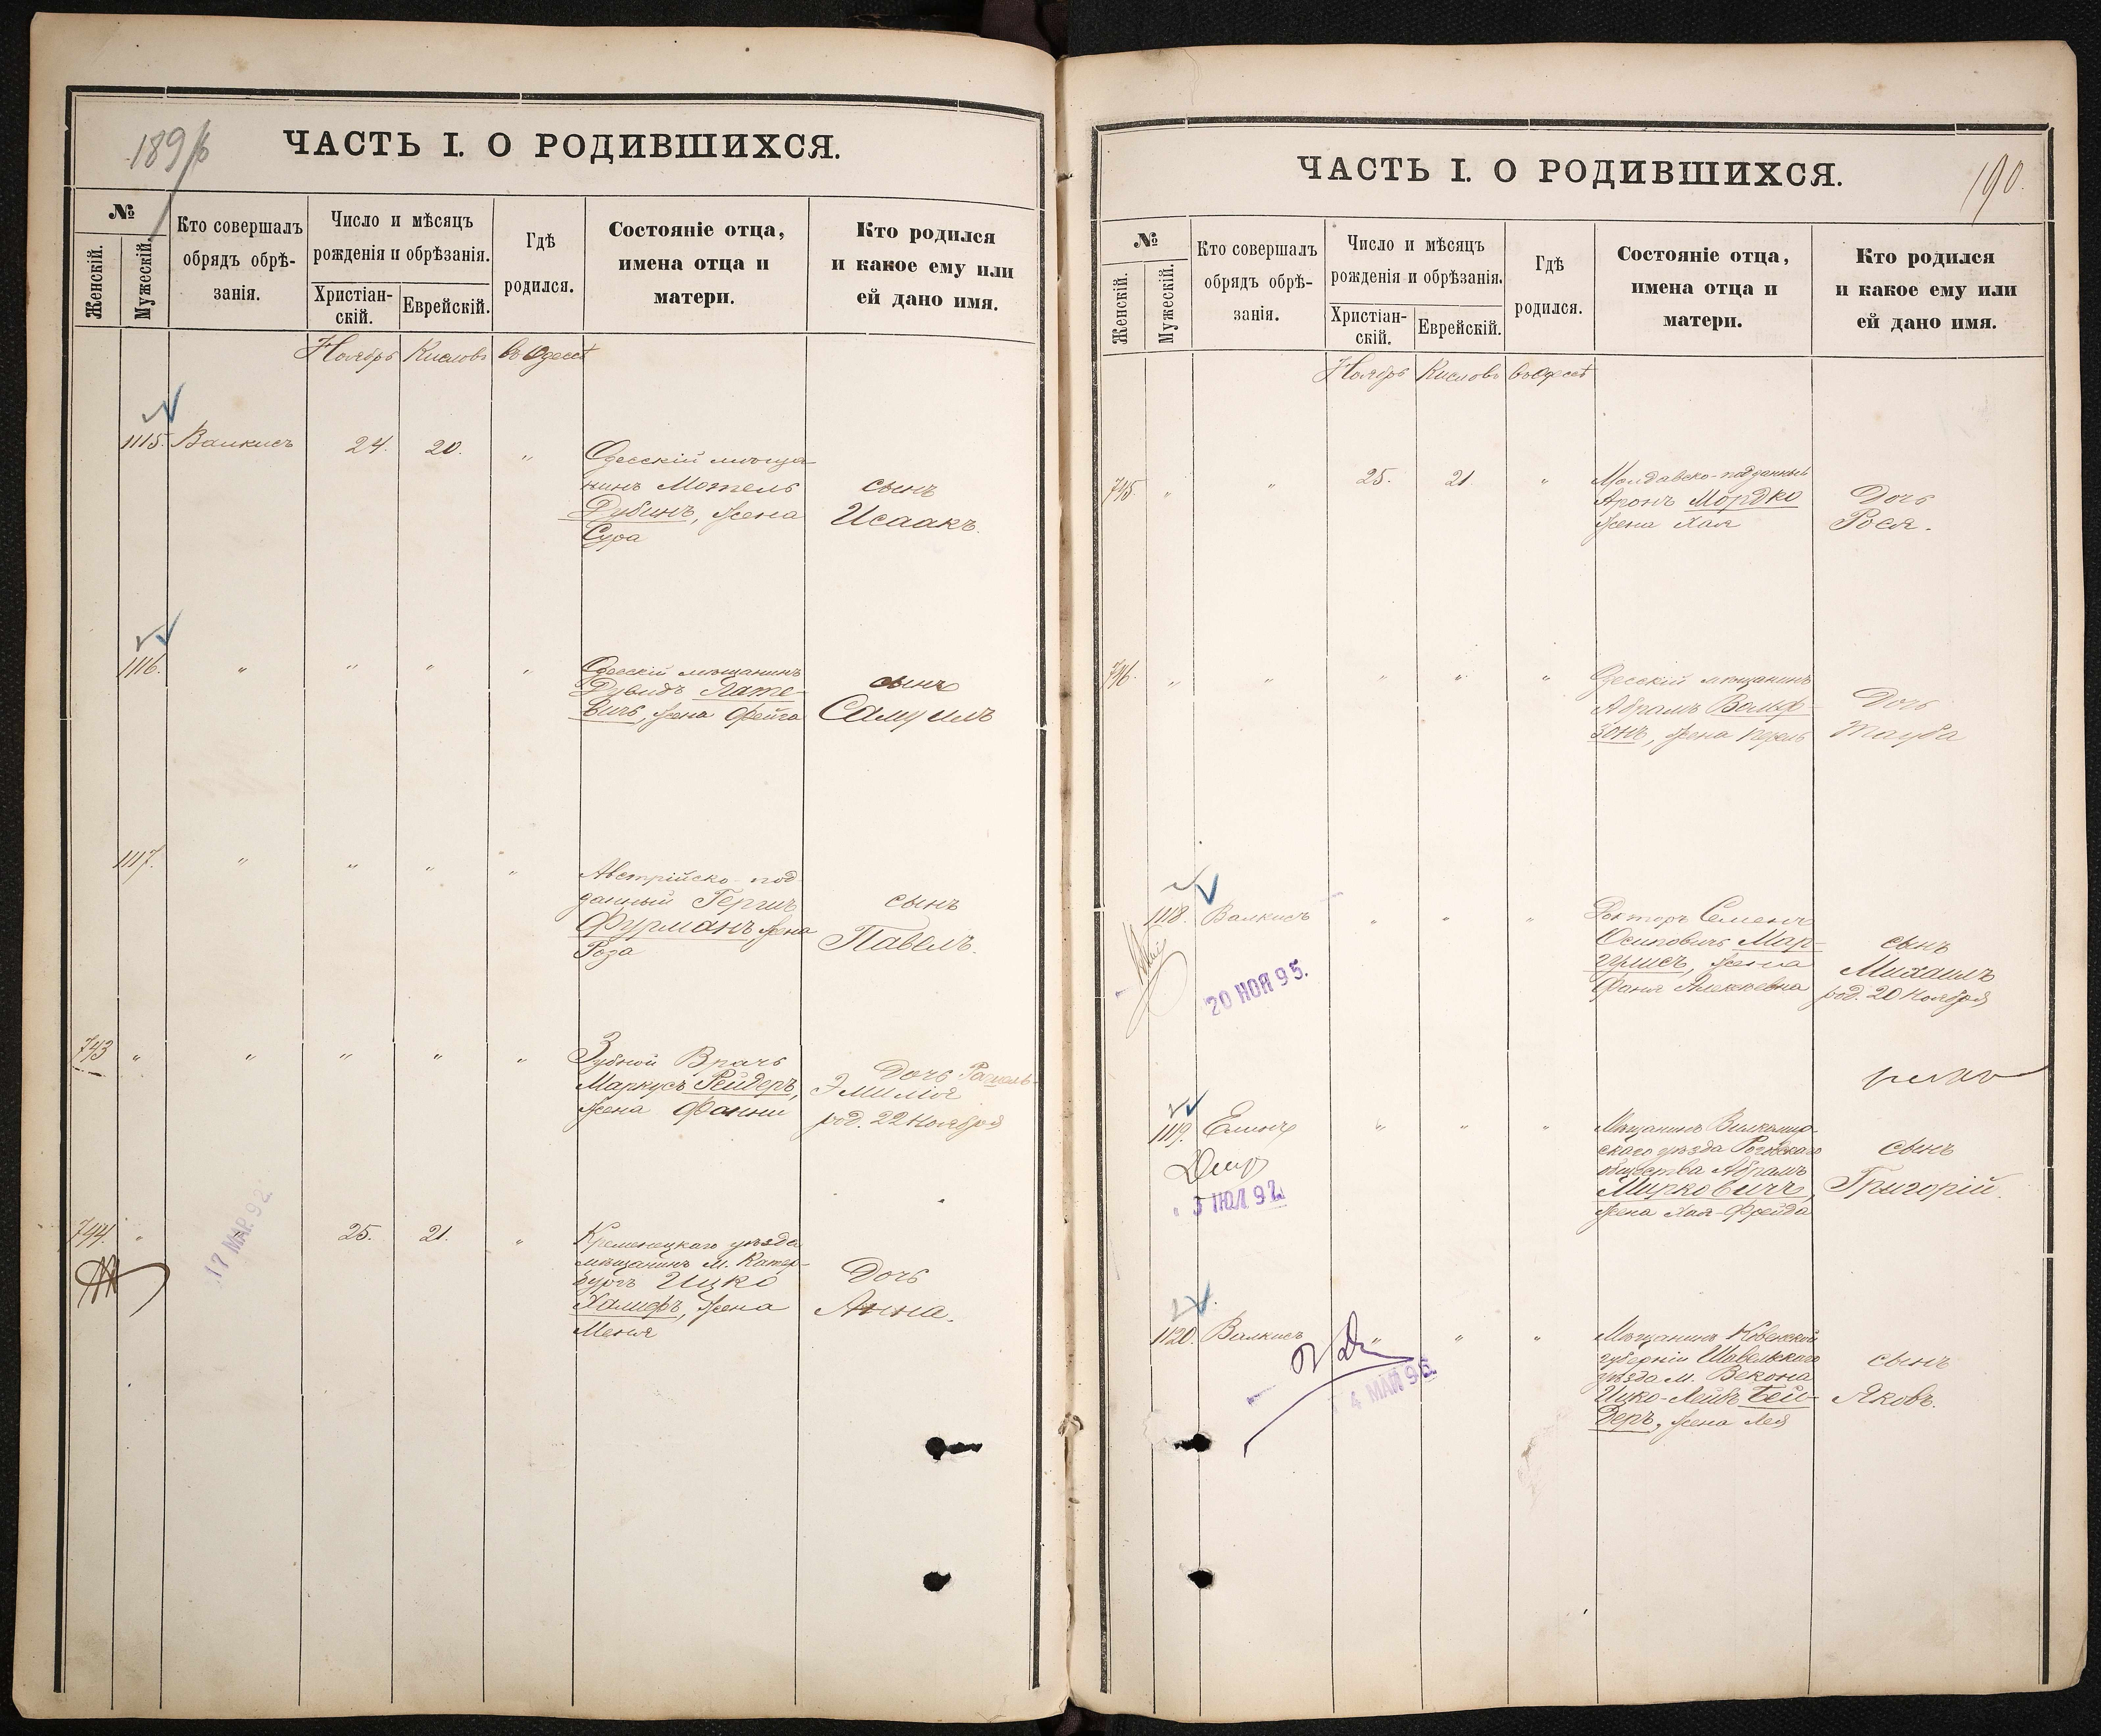 189 об
ЧАСТЬ I. О РОДИВШИХСЯ.
№
Женскій.
Мужескій.
Кто совершалъ
обрядъ обрѣ-
занія.
Число и мѣсяцъ
рожденія и обрѣзанія.
Христіан-
скій.
Еврейскій.
Гдѣ
родился.
Состояніе отца,
имена отца и
матери.
Кто родился
и какое ему или
ей дано имя.
Ноябрь Кисловъ въ Одессѣ
1115. Валкисъ 24. 20. "
Одесскій мѣща-
нинъ Мотель
Дубинъ, жена
Сура
сынъ
Исаакъ.
1116. " " " "
Одесскій мѣщанинъ
Дувидъ Пате-
вичъ, жена Фейга
сынъ
Самуилъ
1117. " " " "
Австрійско-под
данный Гершъ
Фурманъ жена
Роза
сынъ
Павелъ.
743 " " " " "
Зубной Врачъ
Маркусъ Рейдеръ,
жена Фанни
Дочь Рахиль-
Эмилія
род. 22 Ноября
744. " 25. 21. "
17 МАР. 92
Кременецкаго уѣзда
мѣщанинъ м. Катер-
бургъ Ицко
Халифъ, жена
Меня
Дочь
Анна.
ЧАСТЬ I. О РОДИВШИХСЯ.
190.
№
Женскій.
Мужескій.
Кто совершалъ
обрядъ обрѣ-
занія.
Число и мѣсяцъ
рожденія и обрѣзанія.
Христіан-
скій.
Еврейскій.
Гдѣ
родился.
Состояніе отца,
имена отца и
матери.
Кто родился
и какое ему или
ей дано имя.
Ноябрь Кисловъ въ Одессѣ
745. " " 25. 21. "
Молдавско-подданный
Аронъ Мордко
жена Хая
Дочь
Рося.
746. " " " " "
Одесскій мѣщанинъ
Абрамъ Вольф-
зонъ, жена Перель
Дочь
Тауба
1118. Валкисъ " " "
20 НОЯ 95.
Докторъ Семенъ
Осиповичъ Мар-
гулисъ, жена
Фаня Алексѣевна
сынъ
Михаилъ
род. 20 Ноября
1119. " " "
3 ІЮЛ 92
Мѣщанинъ Вилкомир-
скаго уѣзда
общества Абрамъ
Мирковичъ,
жена Хая-Фрейда
сынъ
Григорій.
1120. Валкисъ " " "
4 МАЙ 96.
Мѣщанинъ Ковенской
губерніи Шавельскаго
уѣзда м. Векона
Ицко-Лейбъ Бей-
деръ, жена Лея
сынъ
Яковъ.